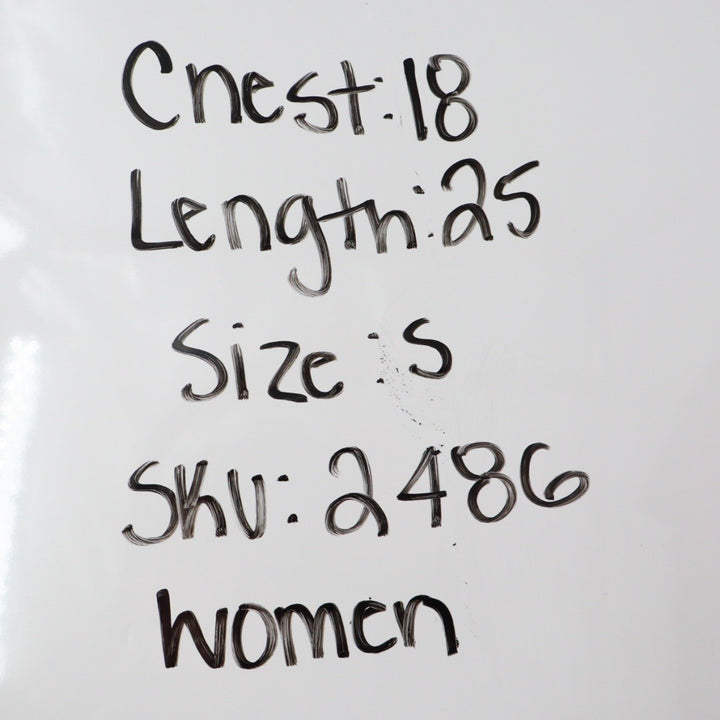 Chest:18
Length:25
Size:S
SKU:2486
Women